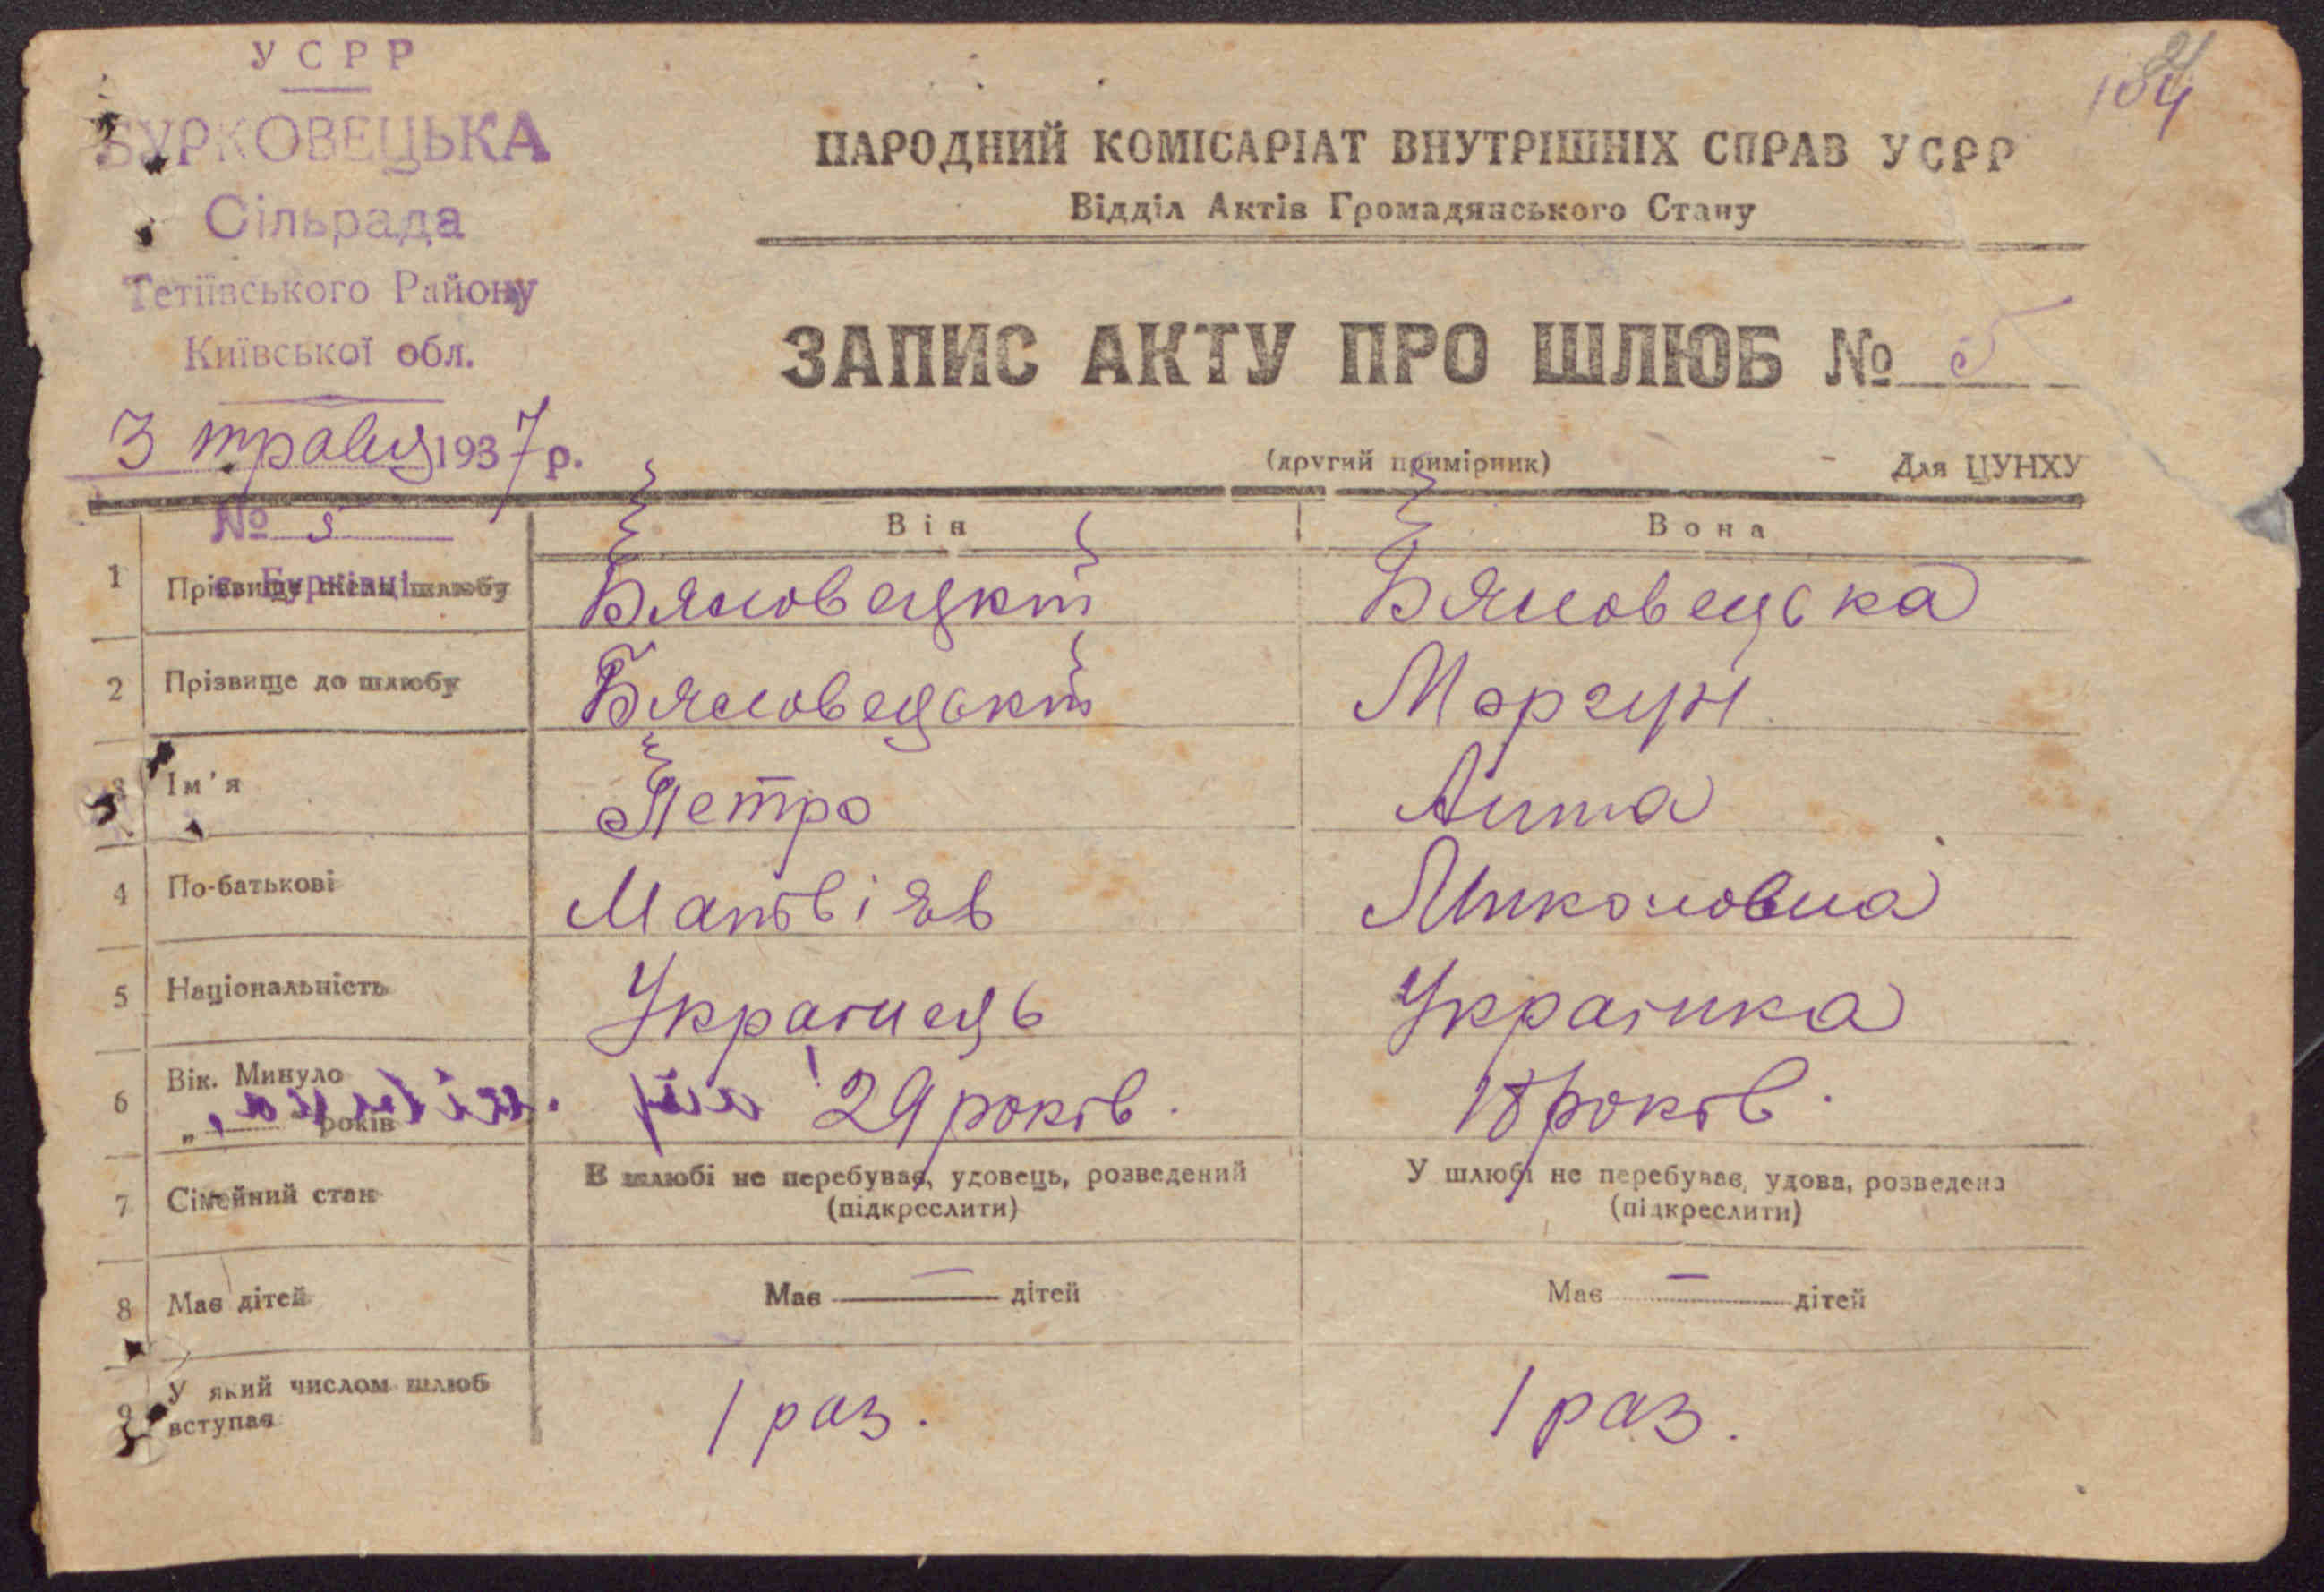 УСРР
БУРКОВЕЦЬКА
Сільрада
Тетіївського Району
Київської обл.
3 травня 1937 р.
№ 5
с. Бурківці
184
НАРОДНИЙ КОМІСАРІАТ ВНУТРІШНІХ СПРАВ УСРР
Відділ Актів Громадянського Стану
ЗАПИС АКТУ ПРО ШЛЮБ № 5
(другий примірник) Для ЦУНХУ
Він Вона
1 Прізвище після шлюбу Бяловецкий Бяловецька
2 Прізвище до шлюбу Бяловецький Моргун
3 Ім'я Петро Анна
4 По-батькові Матвієв Миколовна
5 Національність Украінець Украінка
6 Вік. Минуло
„ років 29 років. 18 років.
7 Сімейний стан В шлюбі не перебував, удовець, розведений У шлюбі не перебуває, удова, розведена
(підкреслити) (підкреслити)
8 Має дітей Має — дітей Має — дітей
9 У який числом шлюб
вступає 1 раз. 1 раз.